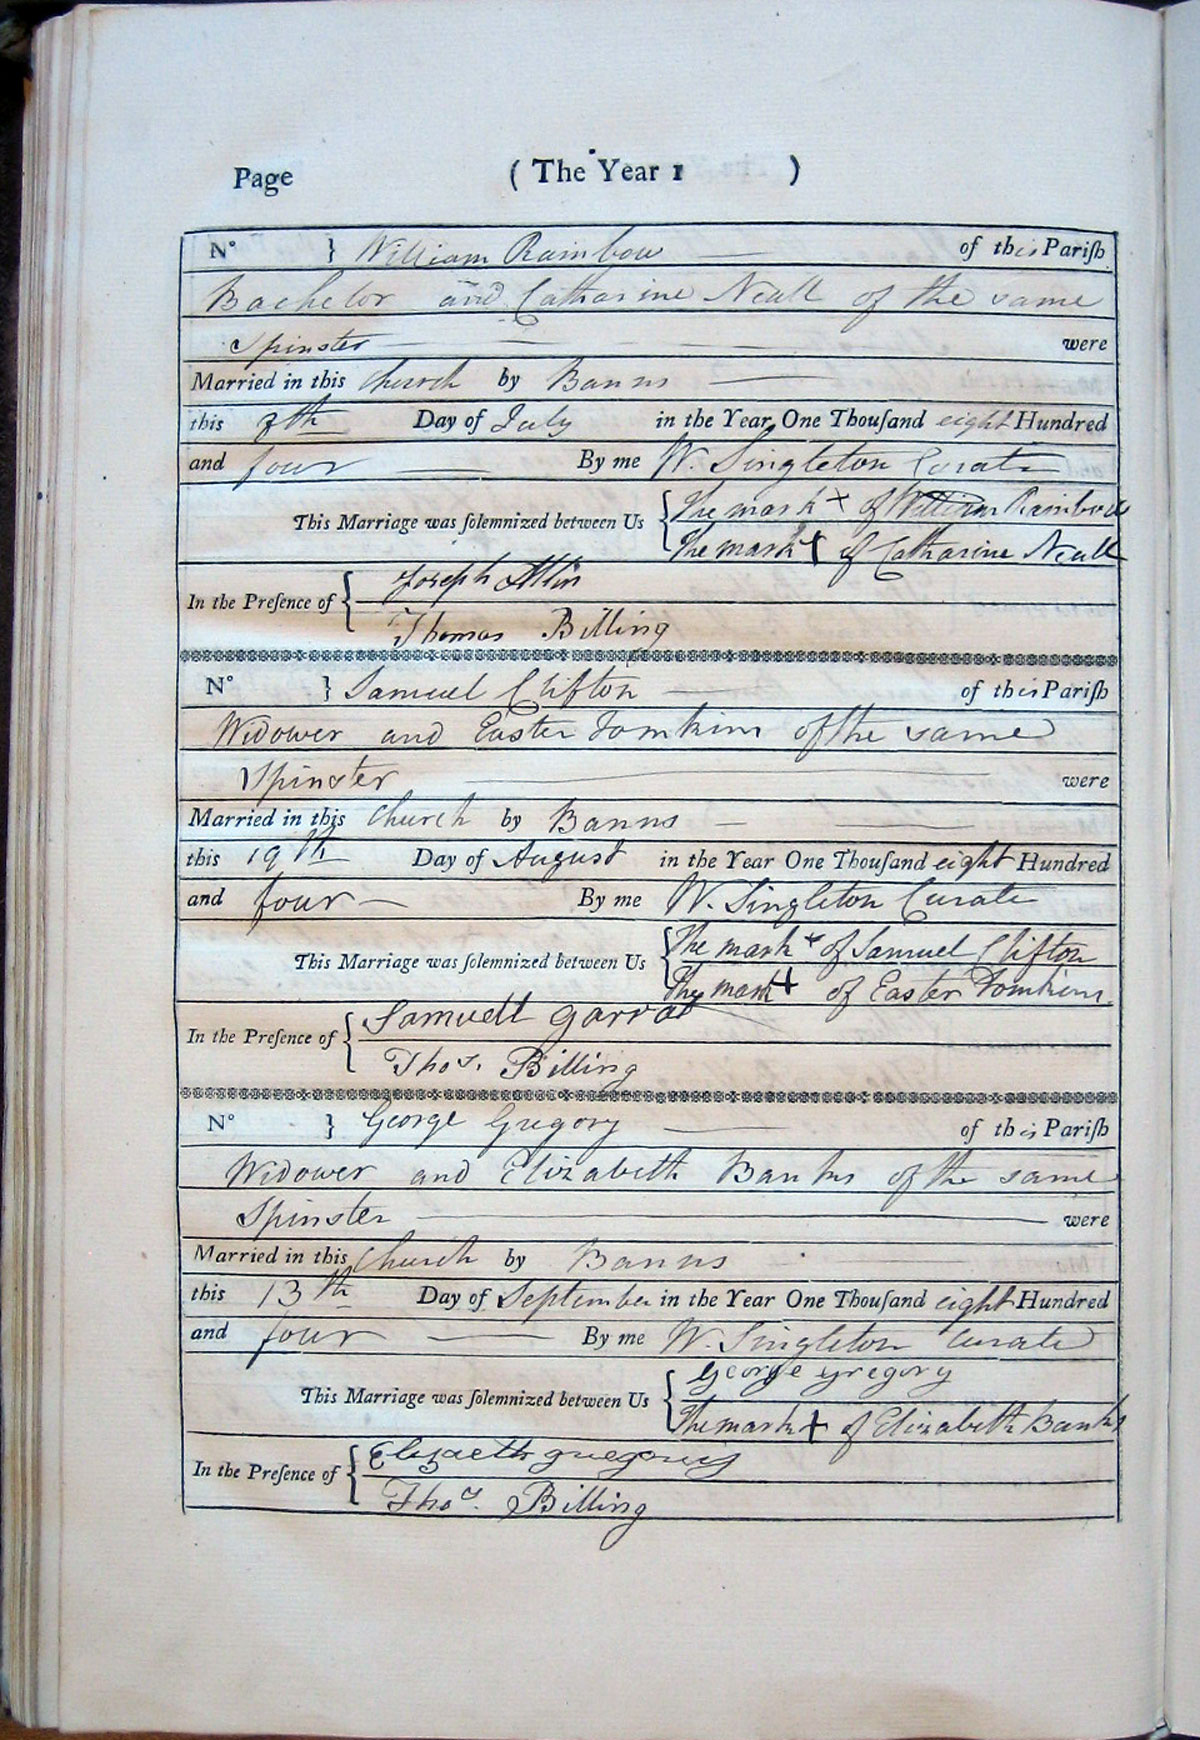 Page (The Year 1 )
N° } William Rainbow of this Pariſh
Bachelor and Catharine Neall of the same
Spinster were
Married in this Church by Banns
this Day of July in the Year One Thouſand eight Hundred
and four By me W. Singleton Curate
This Marriage was ſolemnized between Us { The mark + of William Rainbow
The mark + of Catharine Neall
In the Preſence of { Joseph
Thomas Billing
N° } Samuel Clifton of this Pariſh
Widower and Easter Tomkins of the same
Spinster were
Married in this Church by Banns
this 19th Day of August in the Year One Thouſand eight Hundred
and four By me W. Singleton Curate
This Marriage was ſolemnized between Us { The mark + of Samuel Clifton
The mark + of Easter Tomkins
In the Preſence of { Samuell
Thos. Billing
N° } George Gregory of this Pariſh
Widower and Elizabeth Banks of the same
Spinster were
Married in this Church by Banns
this 13th Day of September in the Year One Thouſand eight Hundred
and four By me W. Singleton Curate
This Marriage was ſolemnized between Us { George Gregory
The mark + of Elizabeth Banks
In the Preſence of {
Thos. Billing